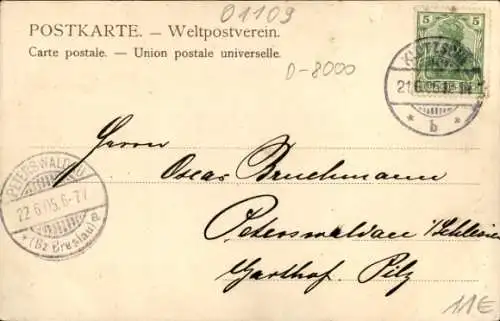 01109
POSTKARTE. — Weltpostverein.
Carte postale. — Union postale universelle.
D-8000
5 5
KLOTZSCHE
21.6.05.
* b *
Herrn
Oscar Bruchmann
Peterswaldau i/Schlesien
Gasthof. Pilz
PETERSWALDAU
22.6.05.6-7N
* (Bz Breslau) a
11€